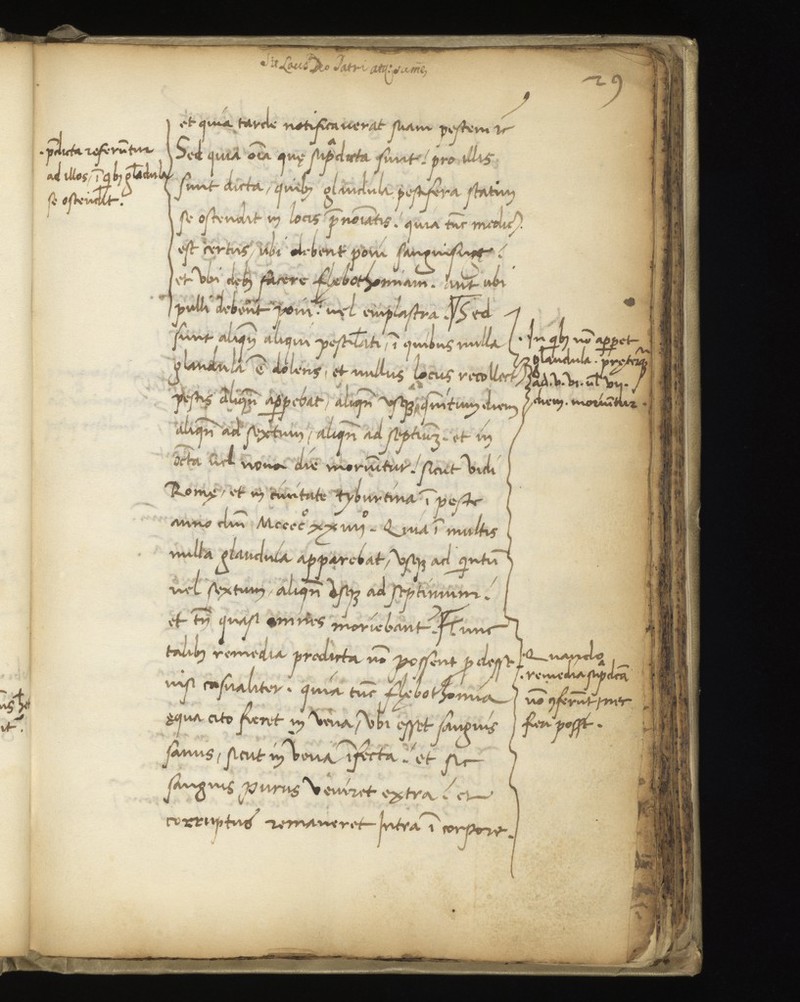 Sit Laus Deo Patri atq;
29
et quia tarde notificauerat suam pestem
Sed quia oīa quę supᵃdicta sunt: pro illis
sunt dicta, quib; glandula pestifera statim
se ostendit in locis p̄noīatis: quia tūc
est certus, ubi debent poni sanguisugę:
et Vbi deb; facere flębothomiam. aut ubi
pulli debent poni: uel emplastra. Sed
sunt aliqñ aliqui pestilēati, ī quibus nulla
glandula ē dolens, et nullus locus
pestis aliqñ appebat, aliqñ vsq; quintum diem
aliqñ ad sextum, aliqñ ad septimū. et in
octa uel nona die moriūtur: sicut Vidi
Romę, et in ciuitate tyburtina ī peste
anno dm̄ Mcccc°xxiiii°. Quia ī multis
nulla glandula apparebat, vsq; ad quintū
uel sextum, aliqñ vsq; ad septimum:
et tñ quasi omnes moriebant². Nunc
talib; remedia predicta nō possent pdesse
nisi casualiter. quia tūc flębothomia
ęqua cito fieret in vena, Vbi esset sanguis
sanus, sicut in Vena īfecta: et sic
sanguis purus Veniret extra: et
corruptus remaneret Intra ī corpore.
. p̄dicta referūtur
ad illos, ī qib; glādula
se ostendit:
. In qib; nō appet
glandula.
ad. v. vi. ul vii.
diem. moriūtur.
Quando
. remedia supᵃdcā
nō ꝯferūt, nec
fieri possūt.